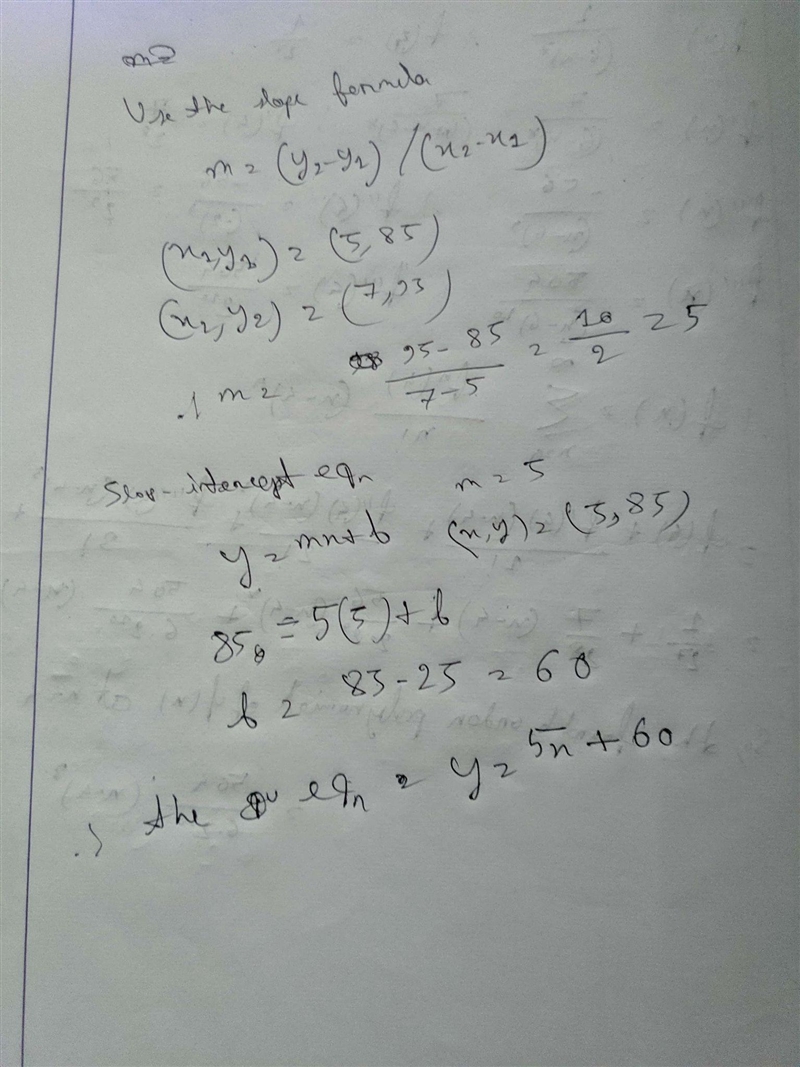 Use the slope formula
m = (y2-y1) / (x2-x1)
(x1,y1) = (5,85)
(x2,y2) = (7,95)
∴ m = 95-85 / 7-5 = 10/2 = 5
Slop-intercept eqn m = 5
y = mx+b (x,y) = (5,85)
85 = 5(5)+b
b = 85-25 = 60
∴ the eqn = y = 5x+60